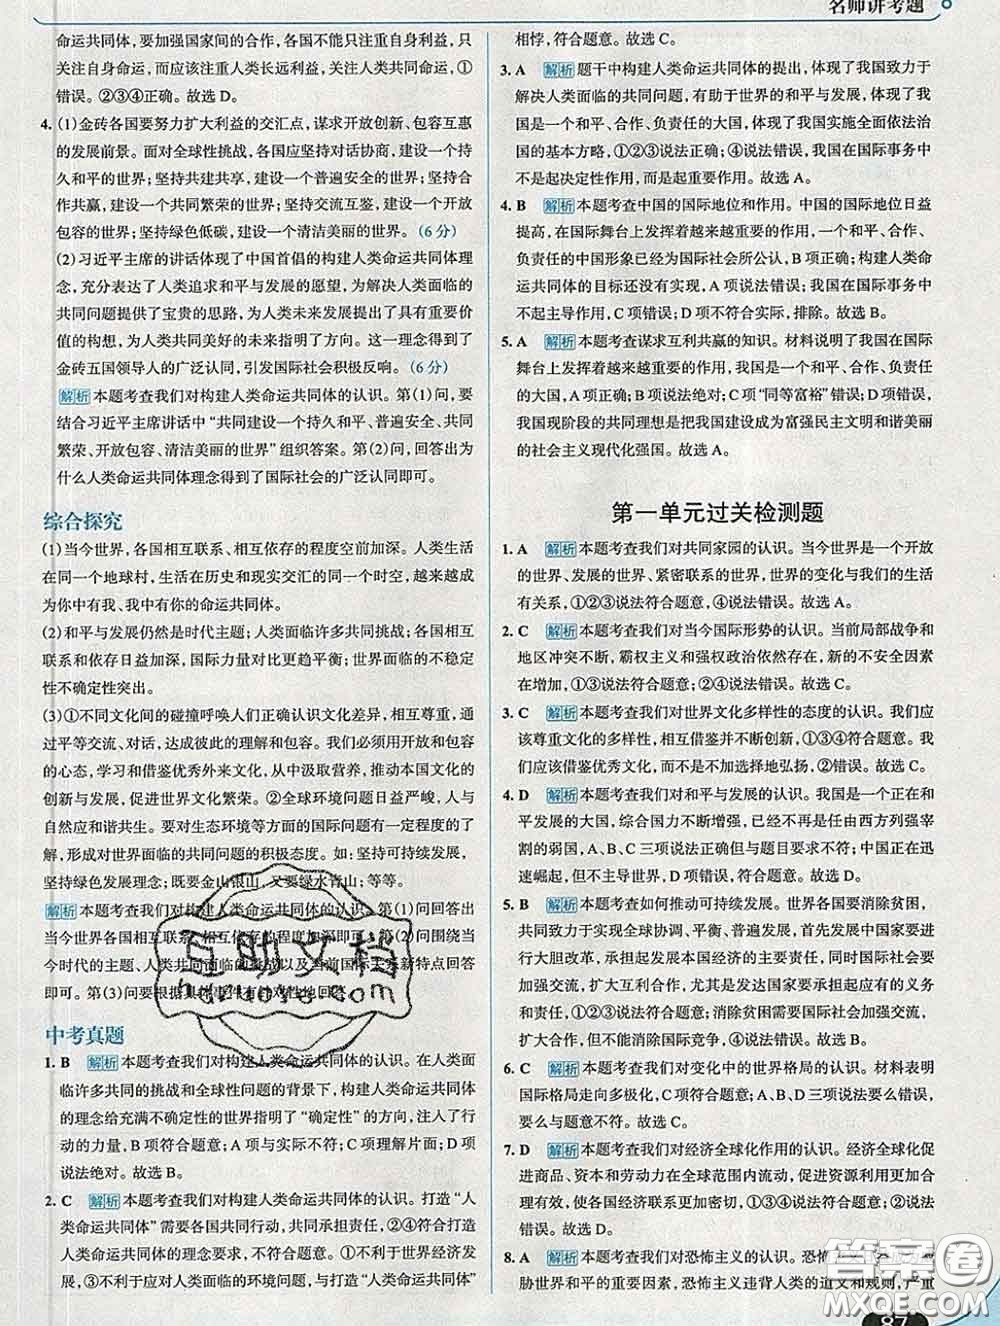 名师讲考题
命运共同体，要加强国家间的合作，各国不能只注重自身利益，只
关注自身命运，而应该注重人类长远利益，关注人类共同命运，①
错误。②③④正确。故选D。
4. (1)金砖各国要努力扩大利益的交汇点，谋求开放创新、包容互惠
的发展前景。面对全球性挑战，各国应坚持对话协商，建设一个持
久和平的世界；坚持共建共享，建设一个普遍安全的世界；坚持合
作共赢，建设一个共同繁荣的世界；坚持交流互鉴，建设一个开放
包容的世界；坚持绿色低碳，建设一个清洁美丽的世界。(6分)
(2)习近平主席的讲话体现了中国首倡的构建人类命运共同体理
念，充分表达了人类追求和平与发展的愿望，为解决人类面临的
共同问题提供了宝贵的思路，为人类未来发展提供了具有重大价
值的构想，为人类共同美好的未来指明了方向。这一理念得到了
金砖五国领导人的广泛认同，引发国际社会积极反响。(6分)
解析 本题考查我们对构建人类命运共同体的认识。第(1)问，要
结合习近平主席讲话中“共同建设一个持久和平、普遍安全、共同
繁荣、开放包容、清洁美丽的世界”组织答案。第(2)问，回答出为
什么人类命运共同体理念得到了国际社会的广泛认同即可。
综合探究
(1)当今世界，各国相互联系、相互依存的程度空前加深。人类生活
在同一个地球村，生活在历史和现实交汇的同一个时空，越来越
成为你中有我、我中有你的命运共同体。
(2)和平与发展仍然是时代主题；人类面临许多共同挑战；各国相互
联系和依存日益加深，国际力量对比更趋平衡；世界面临的不稳定
性不确定性突出。
(3)①不同文化间的碰撞呼唤人们正确认识文化差异，相互尊重，通
过平等交流、对话，达成彼此的理解和包容。我们必须用开放和包容
的心态，学习和借鉴优秀外来文化，从中汲取营养，推动本国文化的
创新与发展，促进世界文化繁荣。②全球环境问题日益严峻，人与
自然应和谐共生。要对生态环境等方面的国际问题有一定程度的了
解，形成对世界面临的共同问题的积极态度。如：坚持可持续发展，
坚持绿色发展理念；既要金山银山，又要绿水青山；等等。
解析 本题考查我们对构建人类命运共同体的认识。第(1)问回答出
当今世界各国相互联系、相互依存的程度加深即可。第(2)问围绕
当今时代的主题、人类共同面临的挑战以及当前国际关系新特点回答
即可。第(3)问要根据具体事件有针对性地回答。
互助文档
huzhuove.com
中考真题
1. B 解析 本题考查我们对构建人类命运共同体的认识。在人类面
临许多共同的挑战和全球性问题的背景下，构建人类命运共同体
的理念给充满不确定性的世界指明了“确定性”的方向，注入了行
动的力量，B项符合题意；A项与实际不符；C项理解片面；D项
说法绝对。故选B。
2. C 解析 本题考查我们对构建人类命运共同体的认识。打造“人
类命运共同体”需要各国共同行动，共同承担责任，②④符合打造
人类命运共同体的理念要求，不符合题意。①不利于世界经济发
展，③不利于应对人类面临的环境问题，与打造“人类命运共同体”
相悖，符合题意。故选C。
3. A 解析 题干中构建人类命运共同体的提出，体现了我国致力于
解决人类面临的共同问题，有助于世界的和平与发展，体现了我
国是一个和平、合作、负责任的大国，体现了我国实施全面依法治
国的基本方略，①②③说法正确；④说法错误，我国在国际事务中
不是起决定性作用，而是起重要作用。故选A。
4. B 解析 本题考查中国的国际地位和作用。中国的国际地位日益
提高，在国际舞台上发挥着越来越重要的作用，一个和平、合作、
负责任的中国形象已经为国际社会所公认，B项正确；构建人类命
运共同体的目标还没有实现，A项说法错误；我国在国际事务中
不起主导作用，C项错误；D项不符合实际，排除。故选B。
5. A 解析 本题考查谋求互利共赢的知识。材料说明了我国在国际
舞台上发挥着越来越重要的作用，我国是一个和平、合作、负责任
的大国，A项正确；B项说法绝对；C项“同等富裕”错误；D项错误，
我国现阶段的共同理想是把我国建设成为富强民主文明和谐美丽
的社会主义现代化强国。故选A。
第一单元过关检测题
1. A 解析 本题考查我们对共同家园的认识。当今世界是一个开放
的世界、发展的世界、紧密联系的世界，世界的变化与我们的生活
有关系，①②③说法符合题意，④说法错误。故选A。
2. C 解析 本题考查我们对当今国际形势的认识。当前局部战争和
地区冲突不断，霸权主义和强权政治依然存在，新的不安全因素
在增加，①③说法符合题意；②④说法错误。故选C。
3. C 解析 本题考查我们对世界文化多样性的态度的认识。我们应
该尊重文化的多样性，相互借鉴并不断创新，①③④符合题意。我
们应该借鉴优秀文化，而不是不加选择地弘扬，②错误。故选C。
4. D 解析 本题考查我们对和平与发展的认识。我国是一个正在和
平发展的大国，综合国力不断增强，已经不再是任由西方列强宰
割的弱国，A、B、C三项说法正确但与题目要求不符；中国正在迅
速崛起，但不主导世界，D项错误，符合题意。故选D。
5. B 解析 本题考查如何推动可持续发展。世界各国要消除贫困，
共同致力于实现全球协调、平衡、普遍发展，首先发展中国家要进
行大胆改革，实现发展本国经济的主要任务，同时国际社会要
加强协商，扩大互利合作，尤其是发达国家要消除贸易保护主
义，为发展中国家提供更多的援助。①③④符合题意。②错误，应
扩大合作，但不能无限扩大。故选B。
6. C 解析 本题考查我们对变化中的世界格局的认识。材料表明
国际格局走向多极化，C项符合题意；A、B、D三项要么说法错误，
要么与题意不符。故选C。
7. D 解析 本题考查我们对经济全球化作用的认识。经济全球化促
进商品、资本和劳动力在全球范围内流动，促进资源利用更加合
理有效，使各国经济联系更加密切，①③④说法符合题意，②说法
错误。故选D。
8. A 解析 本题考查我们对恐怖主义的认识。
胁世界和平的重要因素，恐怖主义违背人类的道义和规则，严重
答案圈
MXQE.COM
87